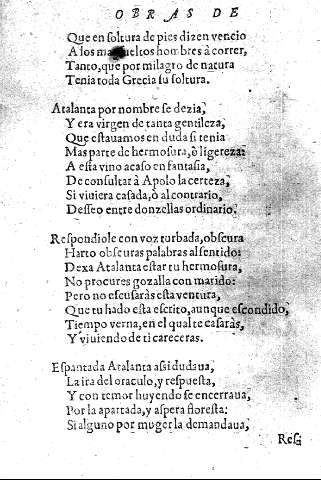 OBRAS DE
Que en soltura de pies dizen vencio
A los mas sueltos hombres à correr,
Tanto, que por milagro de natura
Tenia toda Grecia su soltura.
Atalanta por nombre se dezia,
Y era virgen de tanta gentileza,
Que estauamos en duda si tenia
Mas parte de hermosura, ò ligereza:
A esta vino acaso en fantasia,
De consultàr à Apolo la certeza,
Si viuiera casada, ò al contrario,
Desseo entre donzellas ordinario.
Respondiole con voz turbada, obscura
Harto obscuras palabras al sentido:
Dexa Atalanta estar tu hermosura,
No procures gozalla con marido:
Pero no escusaràs esta ventura,
Que tu hado esta escrito, aunque escondido,
Tiempo verna, en el qual te casaràs,
Y viuiendo de ti careceras.
Espantada Atalanta assi dudaua,
La ira del oraculo, y respuesta,
Y con temor huyendo se encerraua,
Por la apartada, y aspera floresta:
Si alguno por muger la demandaua,
Res